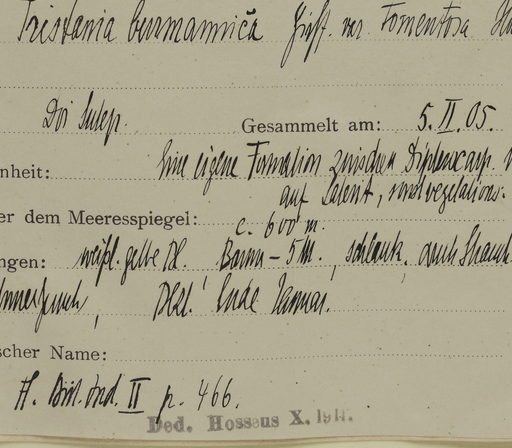 Tristania burmannica Griff. var. Tomentosa
Doi Sutep.
Gesammelt am: 5. II. 05.
nheit: Eine eigene Formation zwischen Dipterocarp.
auf Laterit,
er dem Meeresspiegel: c. 600 m.
ngen: weißl. gelbe Bl. Baum – 5 M., schlank, auch Strauch
Blzt. Ende Januar.
scher Name:
H. Brit. Ind. II p. 466.
Ded. Hosseus X.